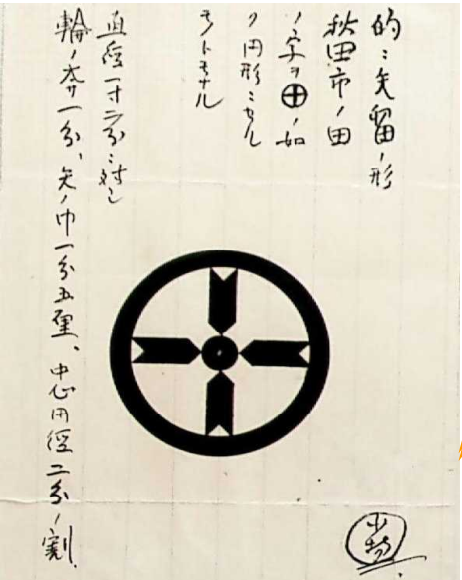 的ニ矢留ノ形
秋田市ノ田
ノ字ヲ⊕ノ如
ク円形ニセル
モノトモナル
直径一寸二分ニ対シ
輪ノ太サ一分、矢ノ巾一分五厘、中心円径二分ノ割